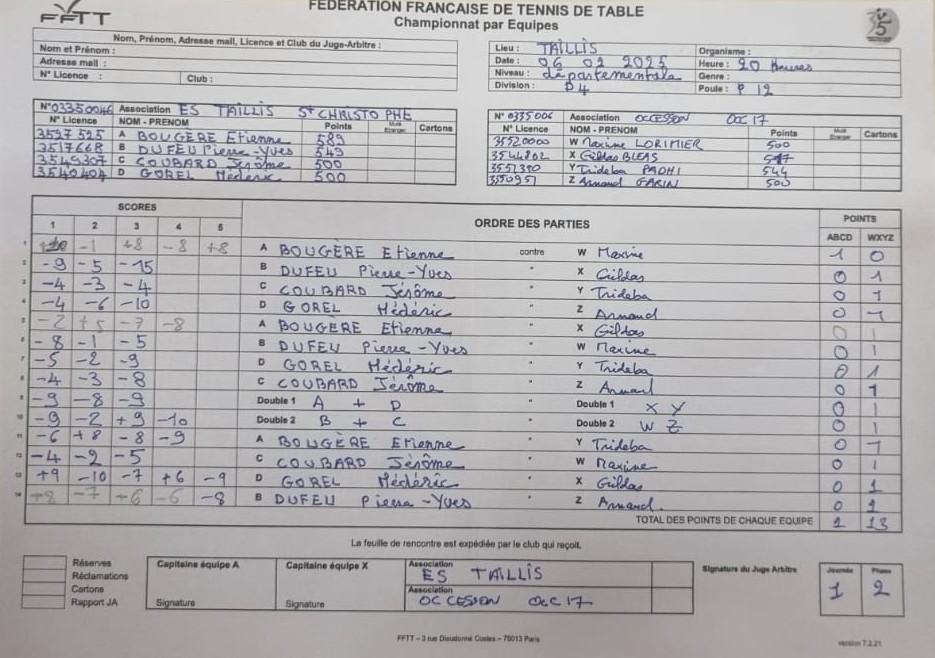 FFTT
FÉDÉRATION FRANÇAISE DE TENNIS DE TABLE
Championnat par Equipes
Nom, Prénom, Adresse mail, Licence et Club du Juge-Arbitre :
Nom et Prénom :
Adresse mail :
N° Licence : Club :
Lieu : TAILLIS Organisme :
Date : 06 02 2025 Heure : 20 heures
Niveau : départementale Genre :
Division : D4 Poule : P 12
N°03350046 Association ES TAILLIS St CHRISTOPHE
N° Licence NOM - PRENOM Points Cartons
3527 525 A BOUGÈRE Etienne 589
3517668 B DUFEU Pierre-Yves 549
3549307 C COUBARD Jérôme 500
3540404 D GOREL Médéric 500
N° 0335006 Association OCCESSON OCC 17
N° Licence NOM - PRENOM Points Cartons
3552000 W Maxime LORIMIER 500
3544802 X Gildas BLEAS
Y Trideba PADHI 544
Z Armand GARIN 500
SCORES ORDRE DES PARTIES POINTS
1 2 3 4 5 ABCD WXYZ
1 -1 +8 -8 +8 A BOUGÈRE Etienne contre W Maxime 1 0
2 -9 -5 -15 B DUFEU Pierre-Yves " X Gildas 0 1
3 -4 -3 -4 C COUBARD Jérôme " Y Trideba 0 1
4 -4 -6 -10 D GOREL Médéric " Z Armand 0 1
5 -2 +5 -7 -8 A BOUGÈRE Etienne " X Gildas 0 1
6 -8 -1 -5 B DUFEU Pierre-Yves " W Maxime 0 1
7 -5 -2 -9 D GOREL Médéric " Y Trideba 0 1
8 -4 -3 -8 C COUBARD Jérôme " Z Armand 0 1
9 -9 -8 -9 Double 1 A + D " Double 1 X Y 0 1
10 -9 -2 +9 -10 Double 2 B + C " Double 2 W Z 0 1
11 -6 +8 -8 -9 A BOUGÈRE Etienne " Y Trideba 0 1
12 -4 -2 -5 C COUBARD Jérôme " W Maxime 0 1
13 +9 -10 -7 +6 -9 D GOREL Médéric " X Gildas 0 1
14 +8 -7 +6 -6 -8 B DUFEU Pierre-Yves " Z Armand 0 1
TOTAL DES POINTS DE CHAQUE EQUIPE 1 13
La feuille de rencontre est expédiée par le club qui reçoit.
Réserves
Réclamations
Cartons
Rapport JA
Capitaine équipe A
Signature
Capitaine équipe X
Signature
Association
ES TAILLIS
Association
OCCESSON OCC 17
Signature du Juge Arbitre
Journée Phase
1 2
FFTT – 3 rue Dieudonné Costes – 75013 Paris
version 7.2.21